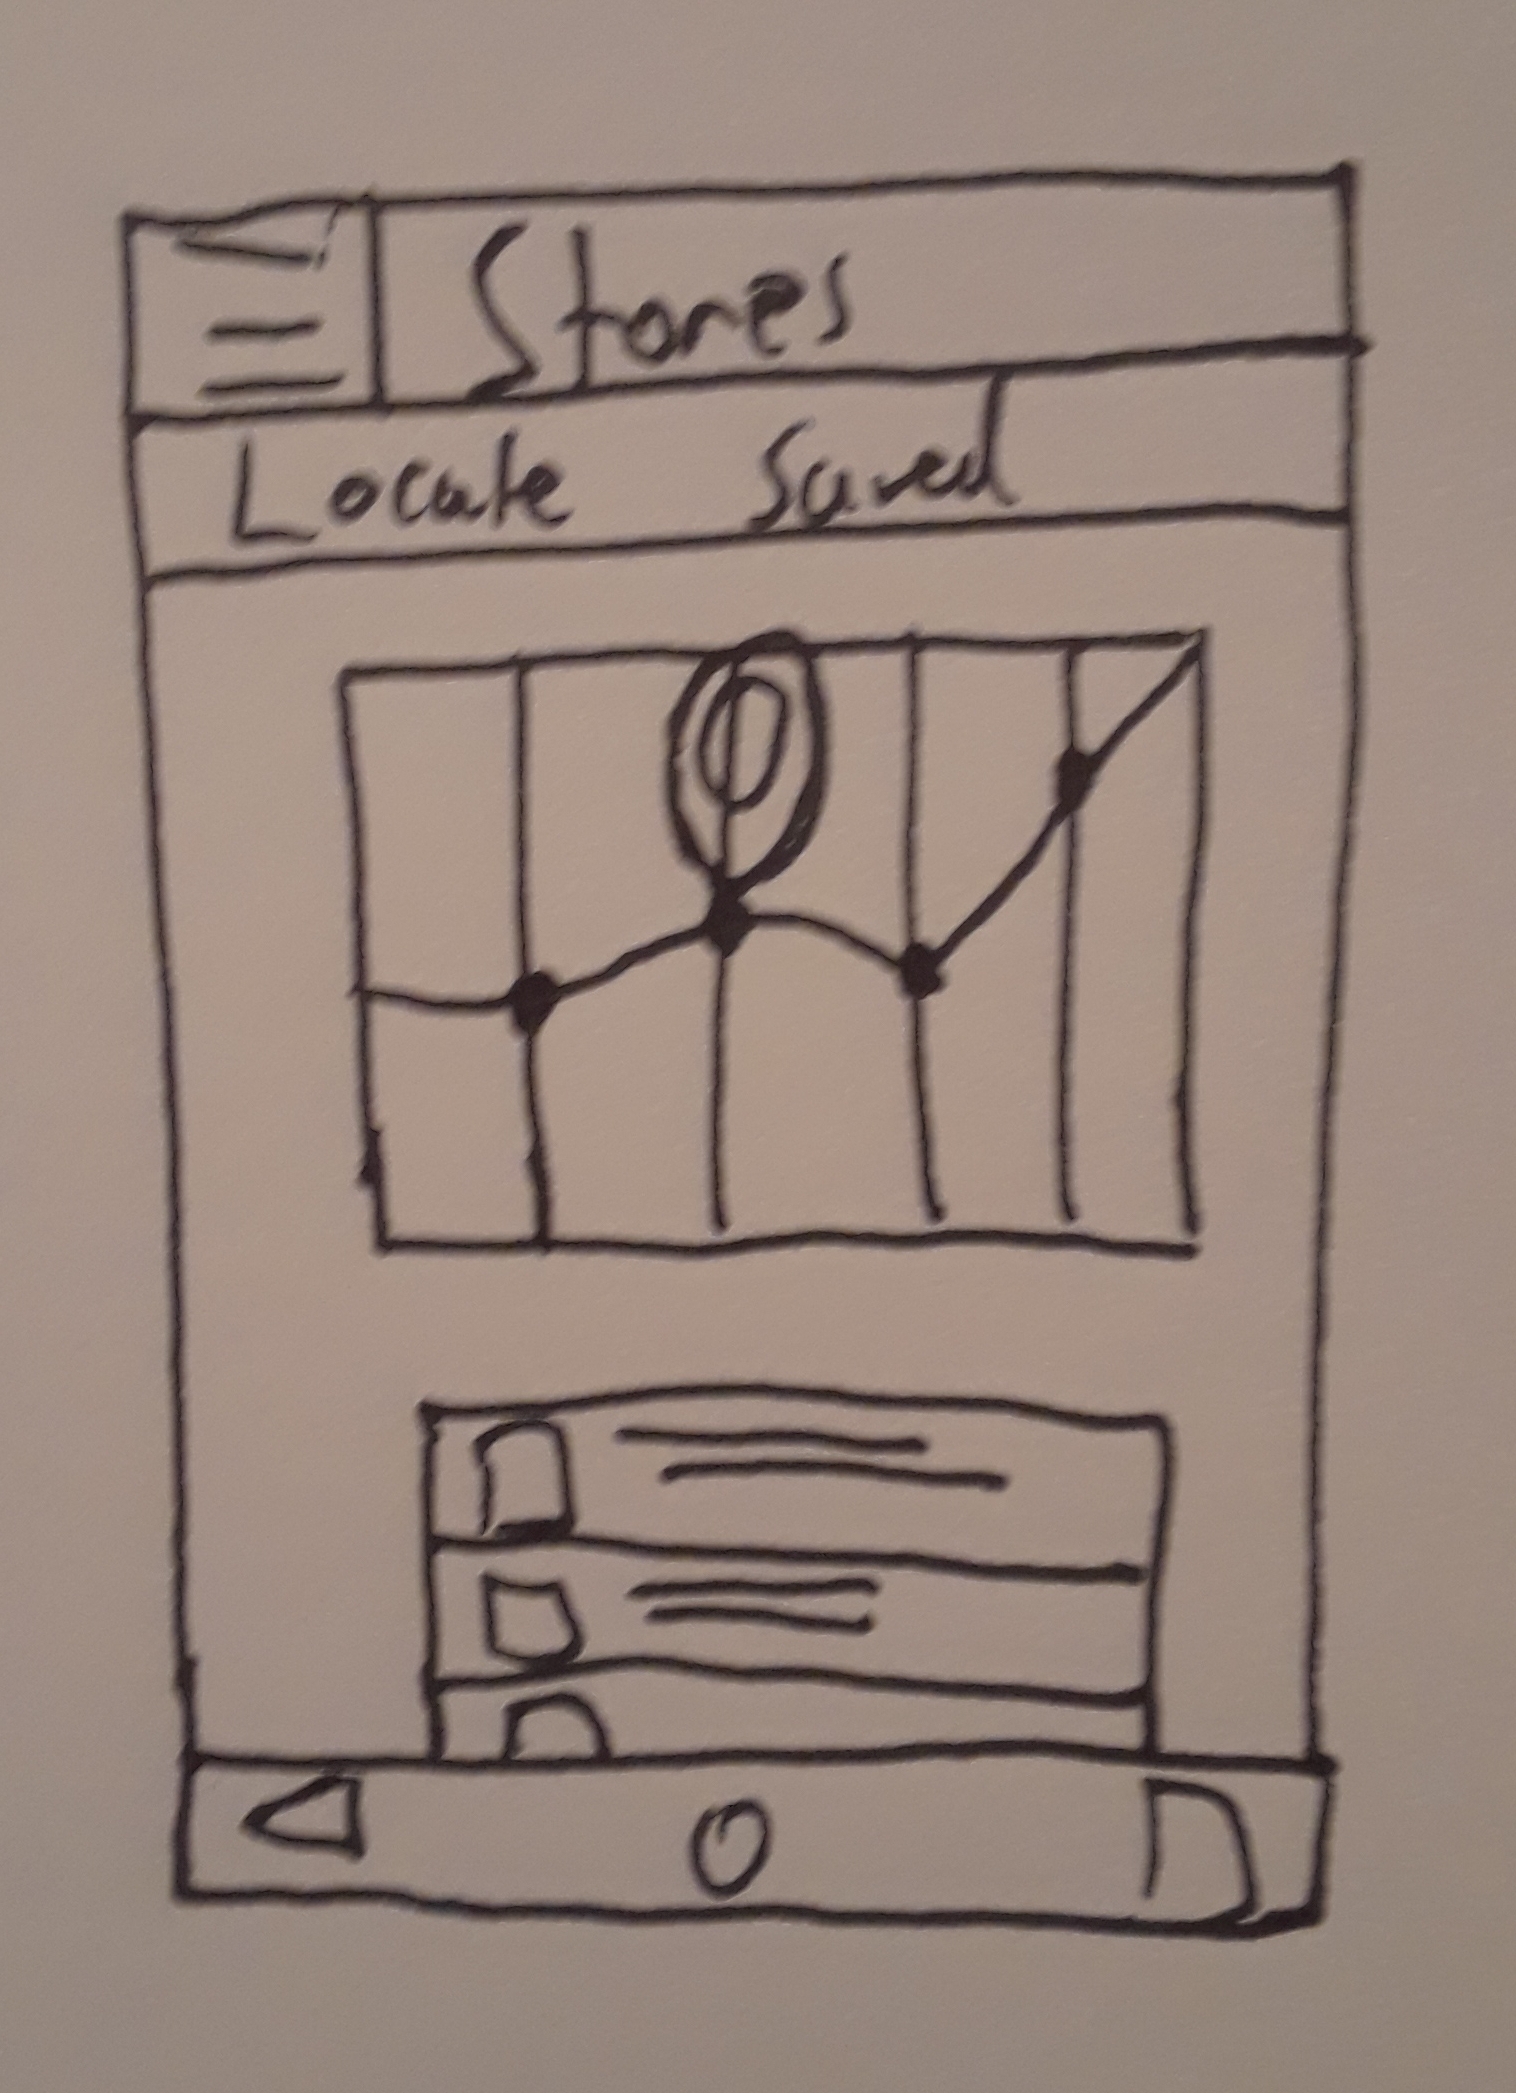 Stores
Locate Saved